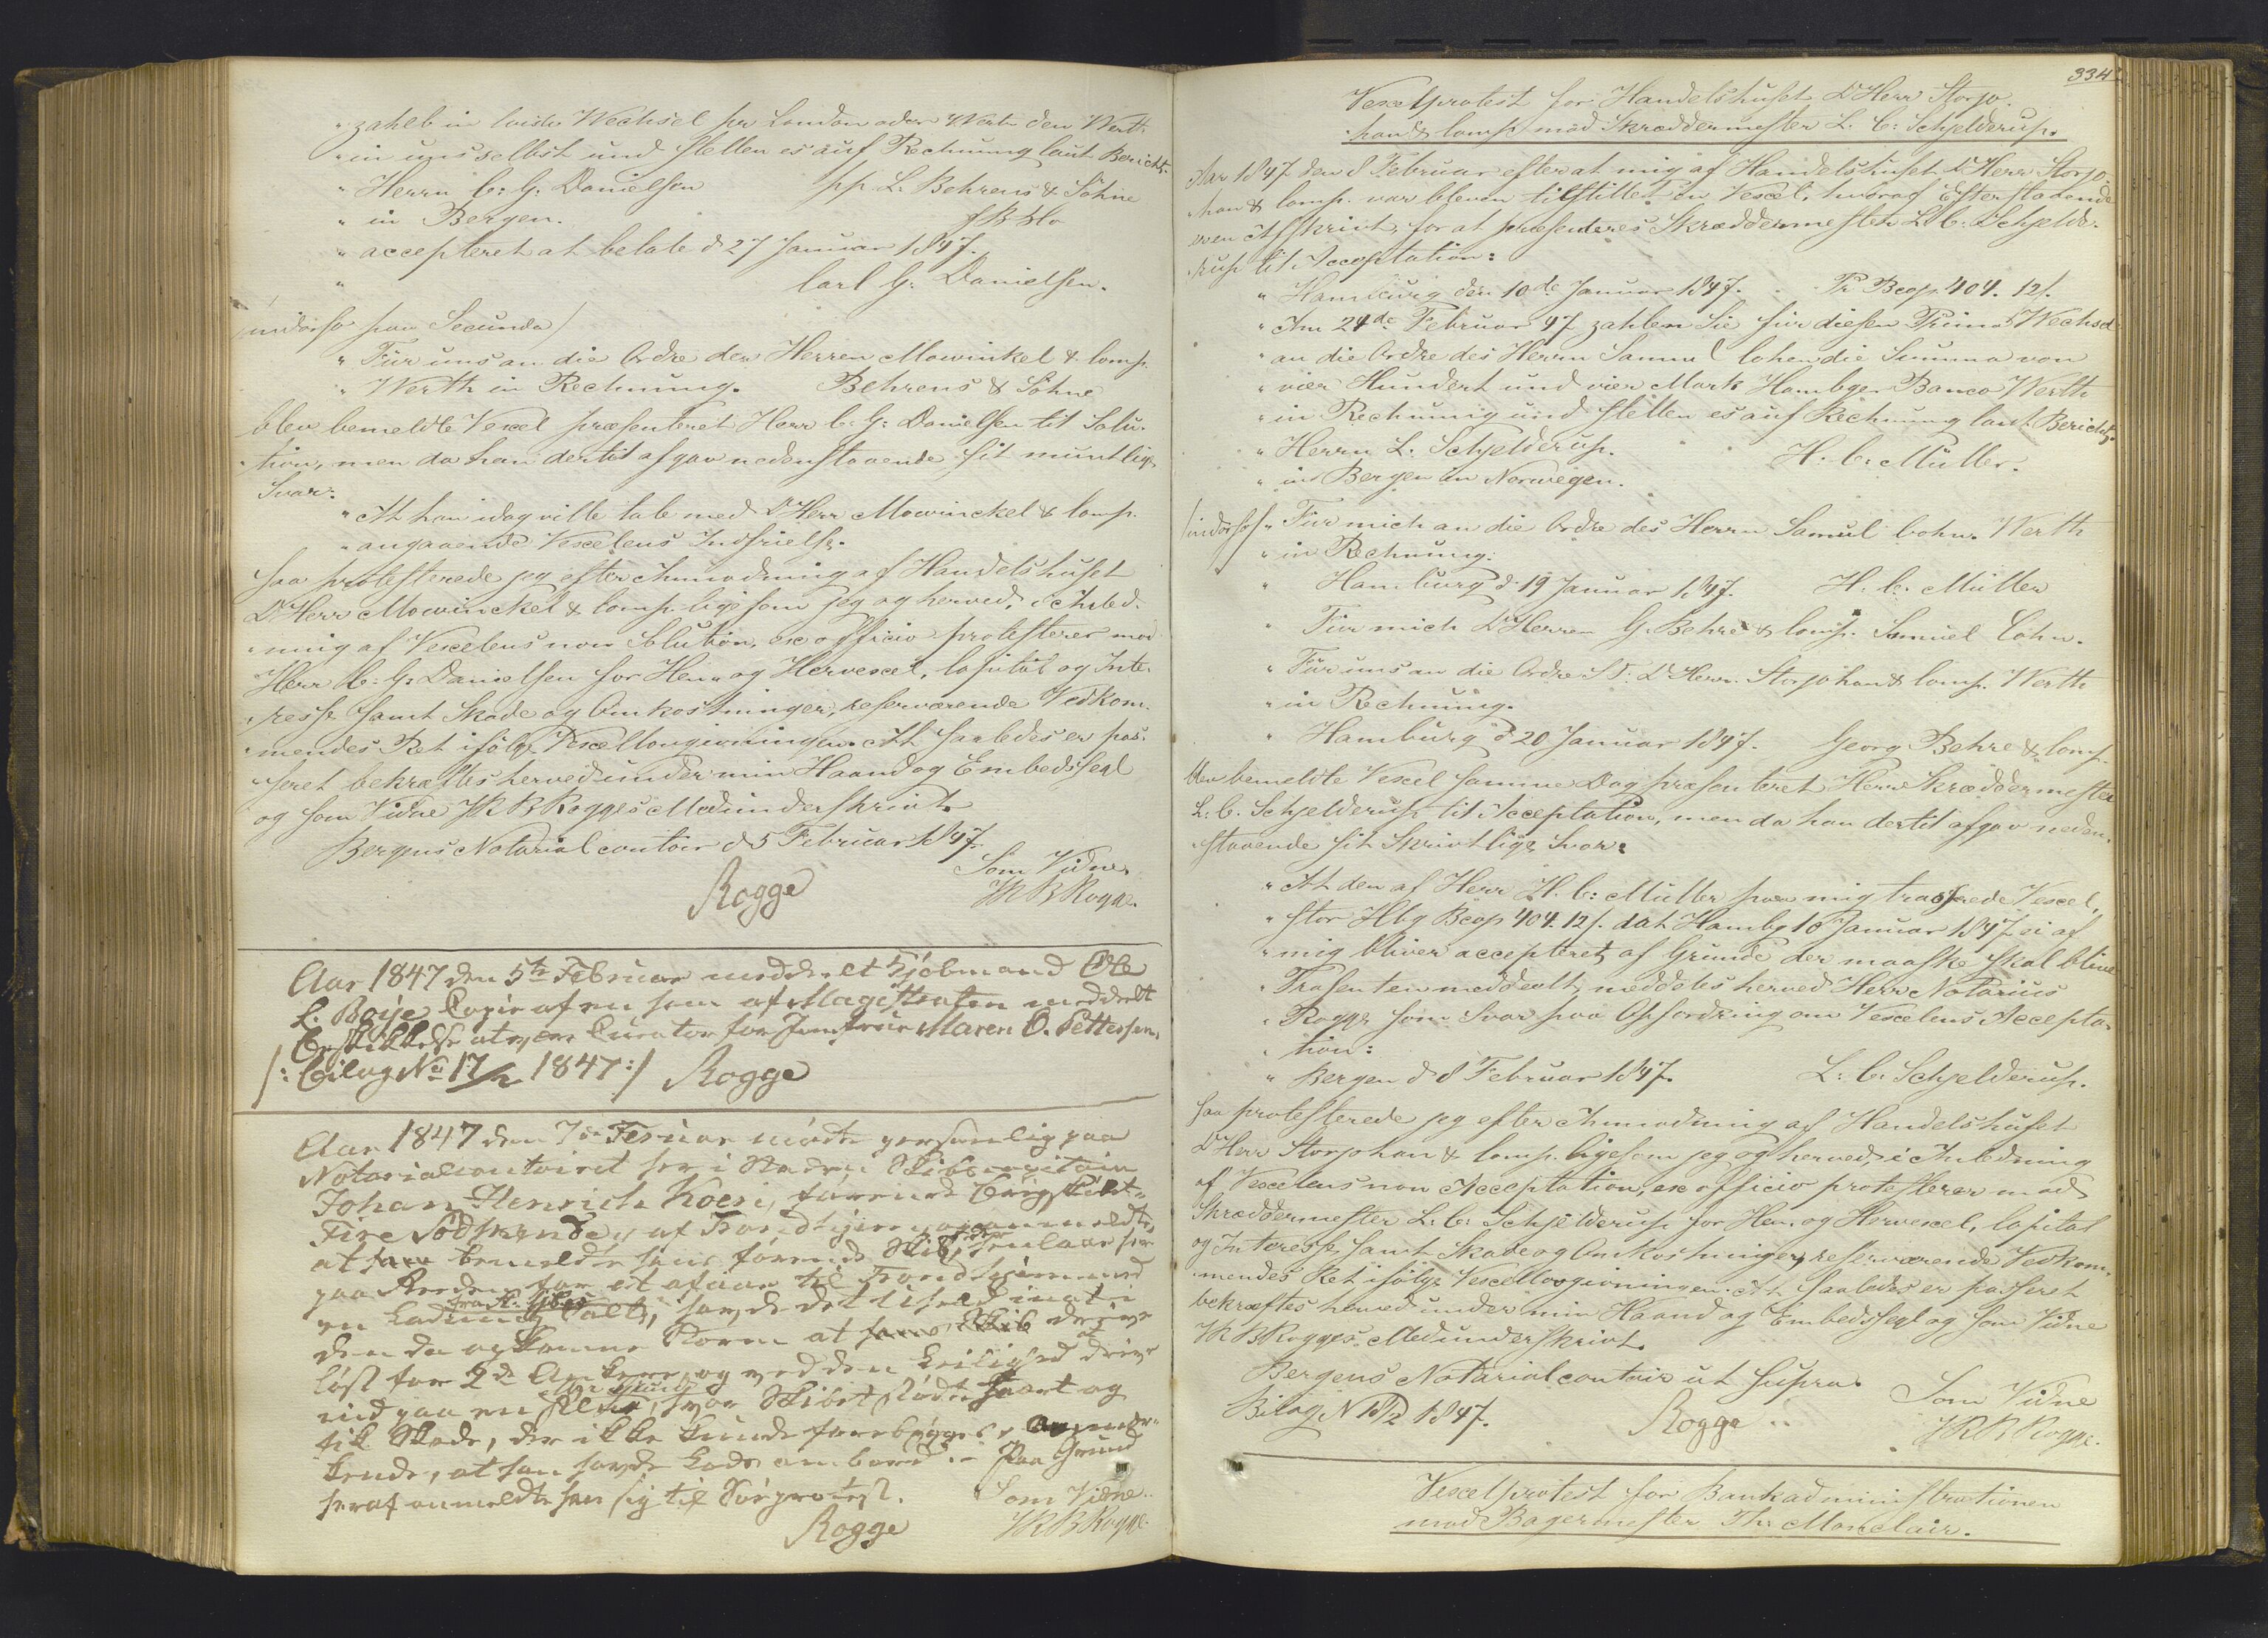 " zahlb in Wechsel pr London oder Werth den Werth
" in uns selbst und stellen es auf Rechnung laut Bericht.
" Herrn C: G: Danielsen pp L. Behrens & Söhne
" in Bergen.
" accepteret at betale d 27 Januar 1847.
" Carl G: Danielsen.
indorso paa Secunda/
" Für uns an die Ordre der Herren Mowinkel & Comp.
" Werth in Rechnung. Behrens & Söhne
blev bemeldte Vexel præsenteret Herr C. G: Danielsen til Solu-
tion, men da han dertil afgav nedenstaaende sit muntlige
Svar:
" At han idag ville tale med D'Herr Mowinckel & Comp.
" angaaende Vexelens Indfrielse.
saa protesterede jeg efter Anmodning af Handelshuset
D'Herr Mowinckel & Comp. ligesom jeg og herved, i Anled-
ning af Vexelens non Solution, ex officio protesterer mod
Herr C: G: Danielsen for Hen- og Hervexel, Capital og Inte-
resse samt Skade og Omkostninger, reserverende Vedkom-
mendes Ret ifölge Vexellovgivningen. At saaledes er pas-
seret bekræftes herved under min Haand og Embedssegl
og som Vidne JKB Rogges Medunderskrivt.
Bergens Notarialcontoir d 5 Februar 1847.
Som Vidne
Rogge JKB Rogge.
Aar 1847 den 5te Februar meddelt Kjöbmand Ole
L. Böije Copie af en ham af Magistraten meddelt
Beskikkelse at være Curator for Jomfrue Maren O. Pettersen.
/: Bilag No 17/2 1847:/ Rogge
Aar 1847 den 7de Februar mödte personlig paa
Notarialcontoiret her i Staden Skibscapitain
Johan Henrich Koesi, förende Brigskibet
Fire Södskende, af Trondhjem og anmeldte,
at bemeldte hans förende Skib, som laae her
paa Reeden for at afgaae til Trondhjem med
en Ladning Salt, havde det Uheld inat i
den da opkomne Storm at drive
löst for 2de Ankere og ved den Leilighed at drive
ind paa en Grund, hvor Skibet stödte haart og
fik Skade, der ikke kunde forebygges, anmær-
kende, at han havde Lods ombord. – Paa Grund
heraf anmeldte han sig til Söeprotest. Som Vidne
Rogge JKB Rogge.
334
Vexelprotest for Handelshuset D'Herr Storjo-
han & Comp. mod Skræddermester L. C: Schjelderup.
Aar 1847 den 8 Februar efterat mig af Handelshuset D'Herr Storjo-
han & Comp. var bleven tilstillet en Vexel, hvoraf Efterstaaende
er en Afskrivt, for at præsenteres Skræddermester L: C: Schjelde-
rup til Acceptation:
" Hamburg den 10de Januar 1847. Pr Bcop. 404. 12/.
" Am 24de Februar 47 zahlen Sie für diesen Prima Wechsel
" an die Ordre des Herrn Samuel Cohen die Summa von
" vier Hundert und vier Mark Hambger Banco Werth
" in Rechnung und stellen es auf Rechnung laut Bericht.
" Herrn L. Schjelderup. H. C. Müller.
" in Bergen in Norwegen.
/indorso/ " Für mich an die Ordre des Herrn Samuel Cohn. Werth
" in Rechnung.
" Hamburg d. 19 Januar 1847. H. C. Müller
" Für mich D'Herren G. Behre & Comp. Samuel Cohn.
" Für uns an die Ordre S T: D'Herr. Storjohan & Comp. Werth
" in Rechnung.
" Hamburg d 20 Januar 1847. Georg Behre & Comp.
blev bemeldte Vexel samme Dag præsenteret Herr Skræddermester
L. C. Schjelderup til Acceptation, men da han dertil afgav neden-
staaende sit Skrivtlige Svar:
" At den af Herr H. C: Müller paa mig trasserede Vexel,
" stor Hbg Bcop 404. 12/. dat Hambg 10 Januar 1847 ei af
" mig bliver accepteret, af Grunde der maaske skal blive
" Trasenten meddeelt, meddeles herved Herr Notarius
" Rogge som Svar paa Opfordring om Vexelens Accepta-
" tion:
" Bergen d 8 Februar 1847. L: C: Schjelderup.
saa protesterede jeg efter Anmodning af Handelshuset
D'Herr Storjohan & Comp. ligesom jeg og herved, i Anledning
af Vexelens non Acceptation, ex officio protesterer mod
Skræddermester L: C: Schjelderup for Hen- og Hervexel, Capital
og Interesse, samt Skade og Omkostninger, reserverende Vedkom-
mendes Ret ifölge Vexellovgivningen. At saaledes er passeret
bekræftes herved under min Haand og Embedssegl og som Vidne
JKB Rogges Medunderskrivt.
Bergens Notarialcontoir ut supra. Som Vidne
Bilag N 18/2 1847. Rogge JKB Rogge.
Vexelprotest for Bankadministrationen
mod Bagermester Thr Monclair.